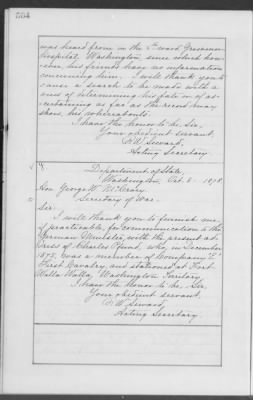 564
was heard from in the Ward Grosvenor
hospital, Washington, since which how-
ever, his friends have no information
concerning him. I will thank you to
cause a search to be made with a
view of determining his fate or of as-
certaining as far as the record may
show, his whereabouts.
I have the honor to be, Sir,
Your obedient servant,
F. W. Seward,
Acting Secretary
Department of State,
Washington, Oct. 5. 1878.
Hon. George W. McCrary,
Secretary of War.
Sir:
I will thank you to furnish me,
if practicable, for communication to the
German Minister, with the present ad-
dress of Charles who, in December
1875, was a member of Company "E"
First Cavalry, and stationed at Fort
Walla Walla, Washington Territory.
I have the honor to be, Sir,
Your obedient servant,
F. W. Seward,
Acting Secretary.